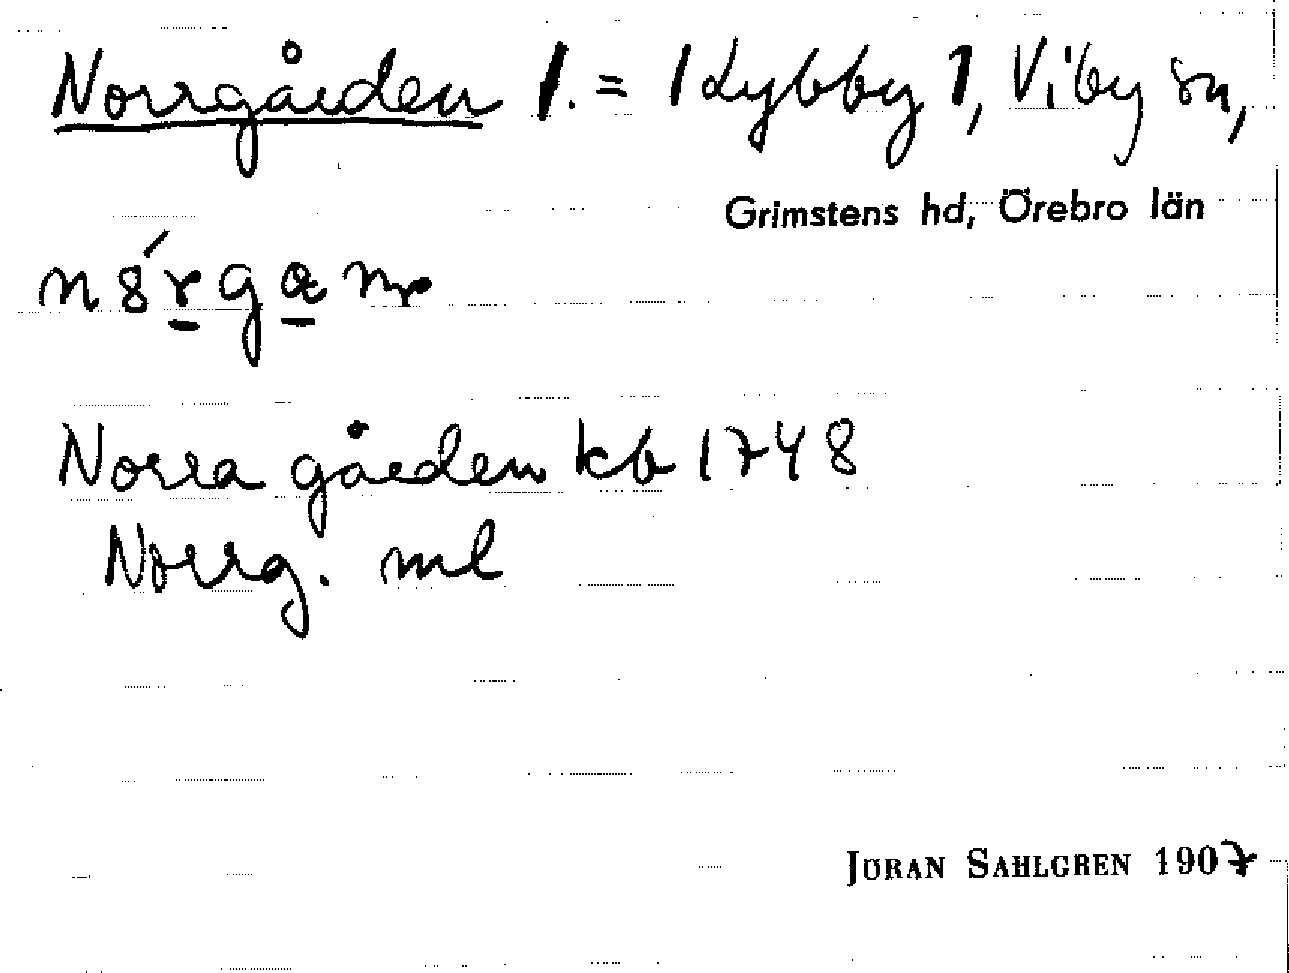 Norrgården 1. = 1 Lybby 1, Viby sn,
Grimstens hd, Örebro län
Norra gården kb 1748
Norrg. ml
JÖRAN SAHLGREN 1907